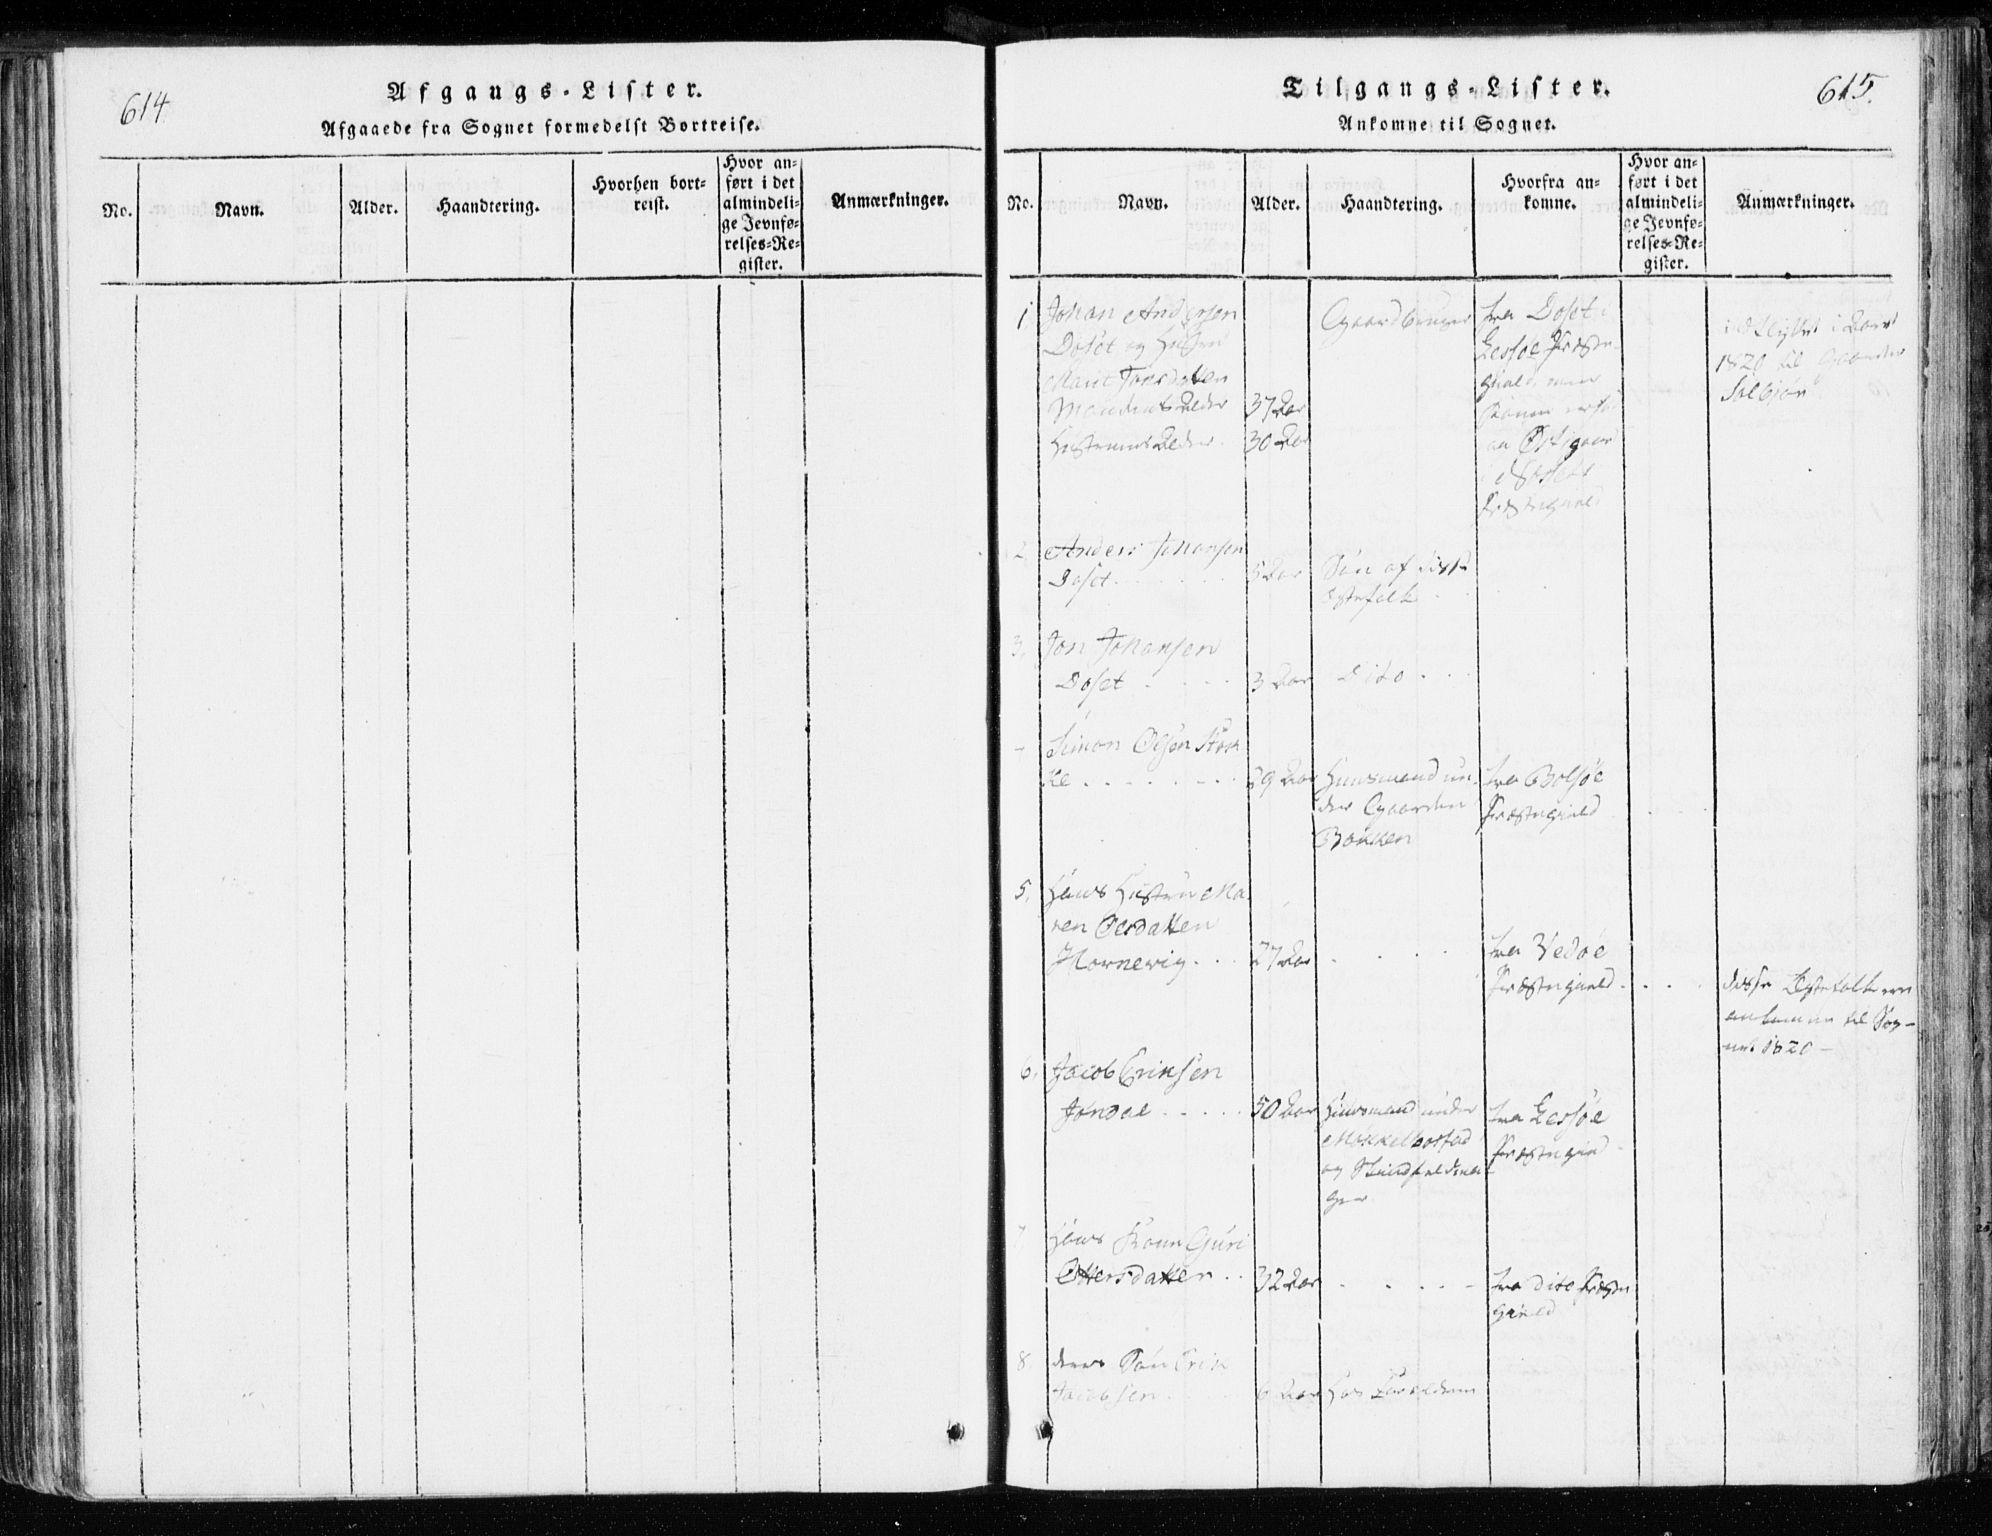 614
Afgangs-Lister.
Afgaaede fra Sognet formedelst Bortreise.
No.
Navn.
Alder.
Haandtering.
Hvorhen bort=
reist.
Hvor an=
ført i det
almindeli=
ge Jevnfø=
relses=Re=
gister.
Anmærkninger.
Tilgangs-Lister.
615.
Ankomne til Sognet.
No.
Navn.
Alder.
Haandtering.
Hvorfra an=
komne.
Hvor an=
ført i det
almindeli=
ge Jevnfø=
relses=Re=
gister.
Anmærkninger.
1.
Johan Andersen
Doset og Hustru
Marit Jonsdatter
Mandens Alder
37 Aar
Hustruens Alder
30 Aar
Gaardbruger
fra Doset i
Lessøe Præste
gield, men
Konen
Østigaar
Præstegield
i Aaret
1820 til Gaarden
2.
Anders Johansen
Doset
5 Aar
Søn af disse
Ægtefolk
3.
Jon Johansen
Doset
3 Aar
Dito
Simon Olsen Stok
ke
29 Aar
Huusmand un
der Gaarden
Bakken
fra Bolsøe
Præstegield
5.
Hans Hustru Ma
ren Olsdatter
Hornevig
27 Aar
fra Vedøe
Præstegield
disse Ægtefolk ere
ankomne til Sog-
net 1820 -
6.
Jacob Eriksen
Jøndal
50 Aar
Huusmand under
Møkkelbostad
og Skindfeldma
ger
fra Lessøe
Præstegield
7.
Hans Kone Guri
Ottersdatter
32 Aar
fra dito Præste
gield
8.
deres Søn Erik
Jacobsen
6 Aar
hos Forældrene